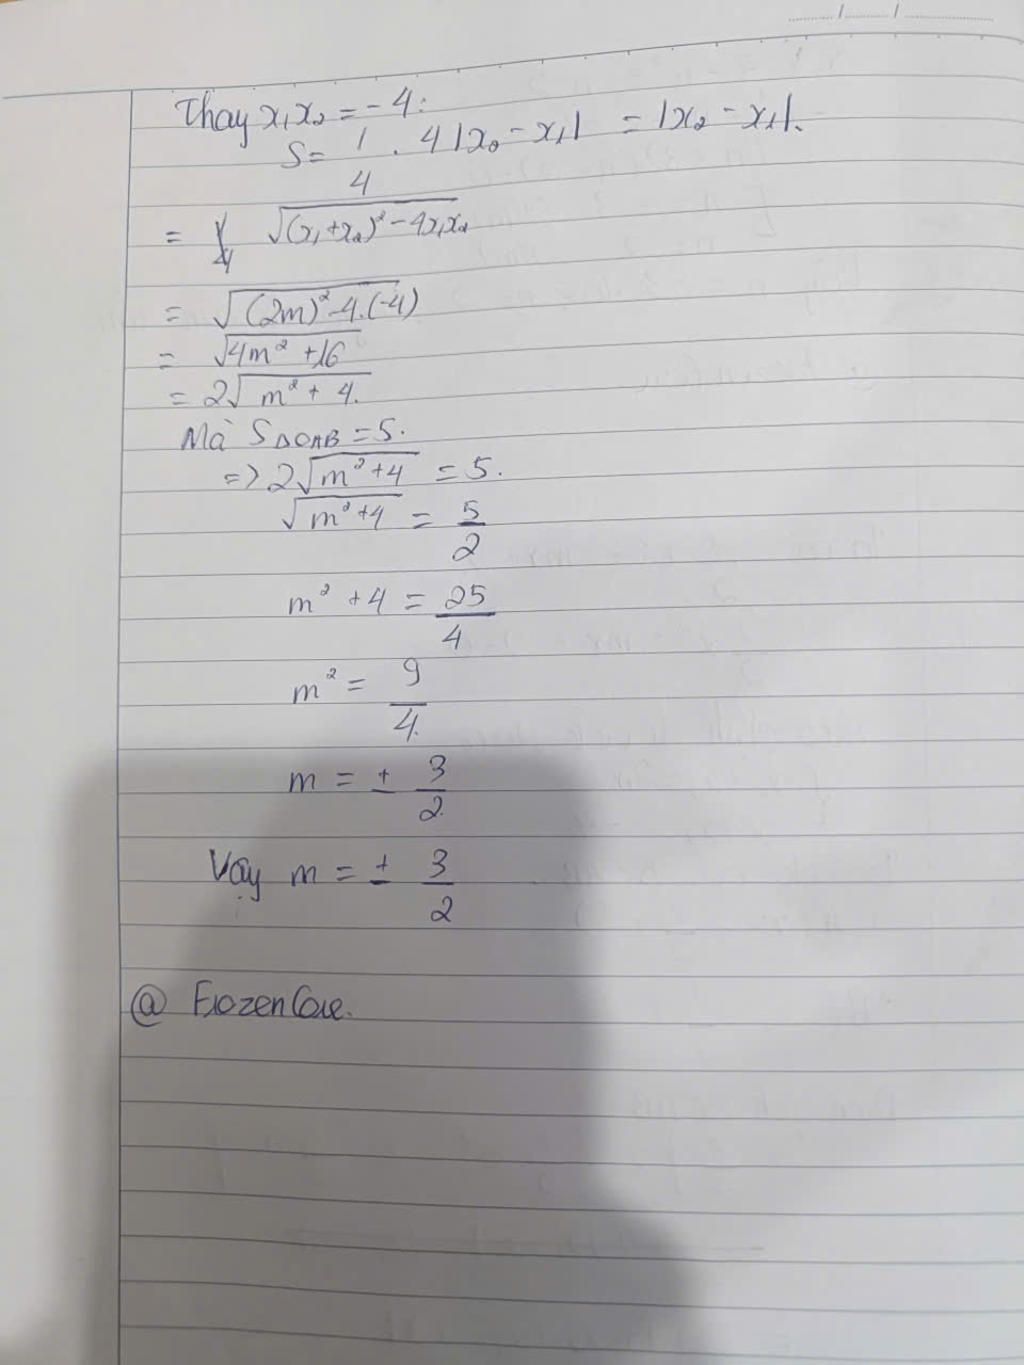 Thay x₁x₂ = -4:
S = 1/4 . 4|x₂ - x₁| = |x₂ - x₁|.
= √(x₁+x₂)² - 4x₁x₂
= √(2m)² - 4.(-4)
= √4m² + 16
= 2√m² + 4.
Mà S△OAB = 5.
=> 2√m² + 4 = 5.
√m² + 4 = 5/2
m² + 4 = 25/4
m² = 9/4.
m = ± 3/2
Vậy m = ± 3/2
@ FrozenCore.